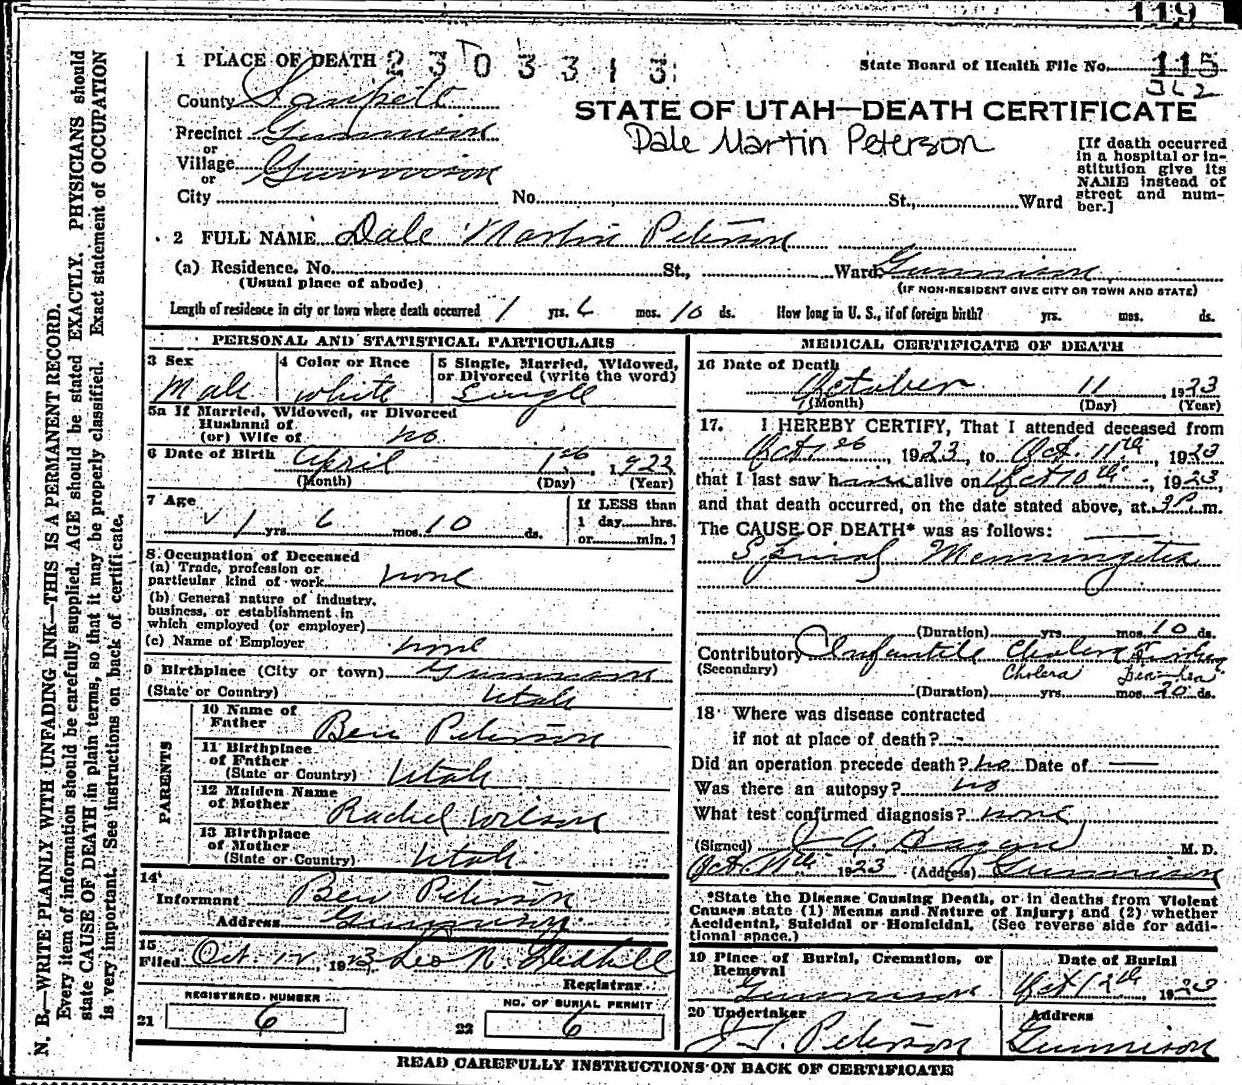 119
1 PLACE OF DEATH 2303313
State Board of Health File No. 115
362
County Sanpete
STATE OF UTAH—DEATH CERTIFICATE
Precinct Gunnison
Dale Martin Peterson
or
Village Gunnison
or
City No. St., Ward
[If death occurred
in a hospital or in-
stitution give its
NAME instead of
street and num-
ber.]
2 FULL NAME Dale Martin Peterson
(a) Residence. No. St., Ward. Gunnison
(Usual place of abode)
(IF NON-RESIDENT GIVE CITY OR TOWN AND STATE)
Length of residence in city or town where death occurred 1 yrs. 6 mos. 10 ds. How long in U. S., if of foreign birth? yrs. mos. ds.
PERSONAL AND STATISTICAL PARTICULARS
3 Sex
Male
4 Color or Race
white
5 Single, Married, Widowed,
or Divorced (write the word)
Single
5a If Married, Widowed, or Divorced
Husband of
(or) Wife of no
6 Date of Birth April 1st, 1922
(Month) (Day) (Year)
7 Age
1 yrs. 6 mos. 10 ds.
If LESS than
1 day......hrs.
or......min.?
8 Occupation of Deceased
(a) Trade, profession or
particular kind of work none
(b) General nature of industry,
business, or establishment in
which employed (or employer)
(c) Name of Employer none
9 Birthplace (City or town) Gunnison
(State or Country) Utah
PARENTS
10 Name of
Father Ben Peterson
11 Birthplace
of Father
(State or Country) Utah
12 Maiden Name
of Mother Rachel Wilson
13 Birthplace
of Mother
(State or Country) Utah
14
Informant Ben Peterson
Address Gunnison
15
Filed Oct. 12, 1923 Leo N. Gledhill
Registrar
REGISTERED NUMBER
21 6
NO. OF BURIAL PERMIT
22 6
MEDICAL CERTIFICATE OF DEATH
16 Date of Death
October 11, 1923
(Month) (Day) (Year)
17. I HEREBY CERTIFY, That I attended deceased from
Oct 1st, 1923, to Oct. 11th, 1923
that I last saw him alive on Oct 10th, 1923,
and that death occurred, on the date stated above, at m.
The CAUSE OF DEATH* was as follows:
Spinal Menningetes
(Duration) yrs. mos. 10 ds.
Contributory Infantile Cholera
(Secondary) Cholera
(Duration) yrs. mos. 20 ds.
18 Where was disease contracted
if not at place of death? -
Did an operation precede death? no Date of —
Was there an autopsy? no
What test confirmed diagnosis? none
(Signed) J A Hagan M. D.
Oct. 11th 1923 (Address) Gunnison
*State the Disease Causing Death, or in deaths from Violent
Causes state (1) Means and Nature of Injury; and (2) whether
Accidental, Suicidal or Homicidal. (See reverse side for addi-
tional space.)
19 Place of Burial, Cremation, or
Removal
Gunnison
Date of Burial
Oct 12th, 1923
20 Undertaker
J. L. Peterson
Address
Gunnison
READ CAREFULLY INSTRUCTIONS ON BACK OF CERTIFICATE
N. B.—WRITE PLAINLY WITH UNFADING INK—THIS IS A PERMANENT RECORD.
Every item of information should be carefully supplied. AGE should be stated EXACTLY. PHYSICIANS should
state CAUSE OF DEATH in plain terms, so that it may be properly classified. Exact statement of OCCUPATION
is very important. See instructions on back of certificate.